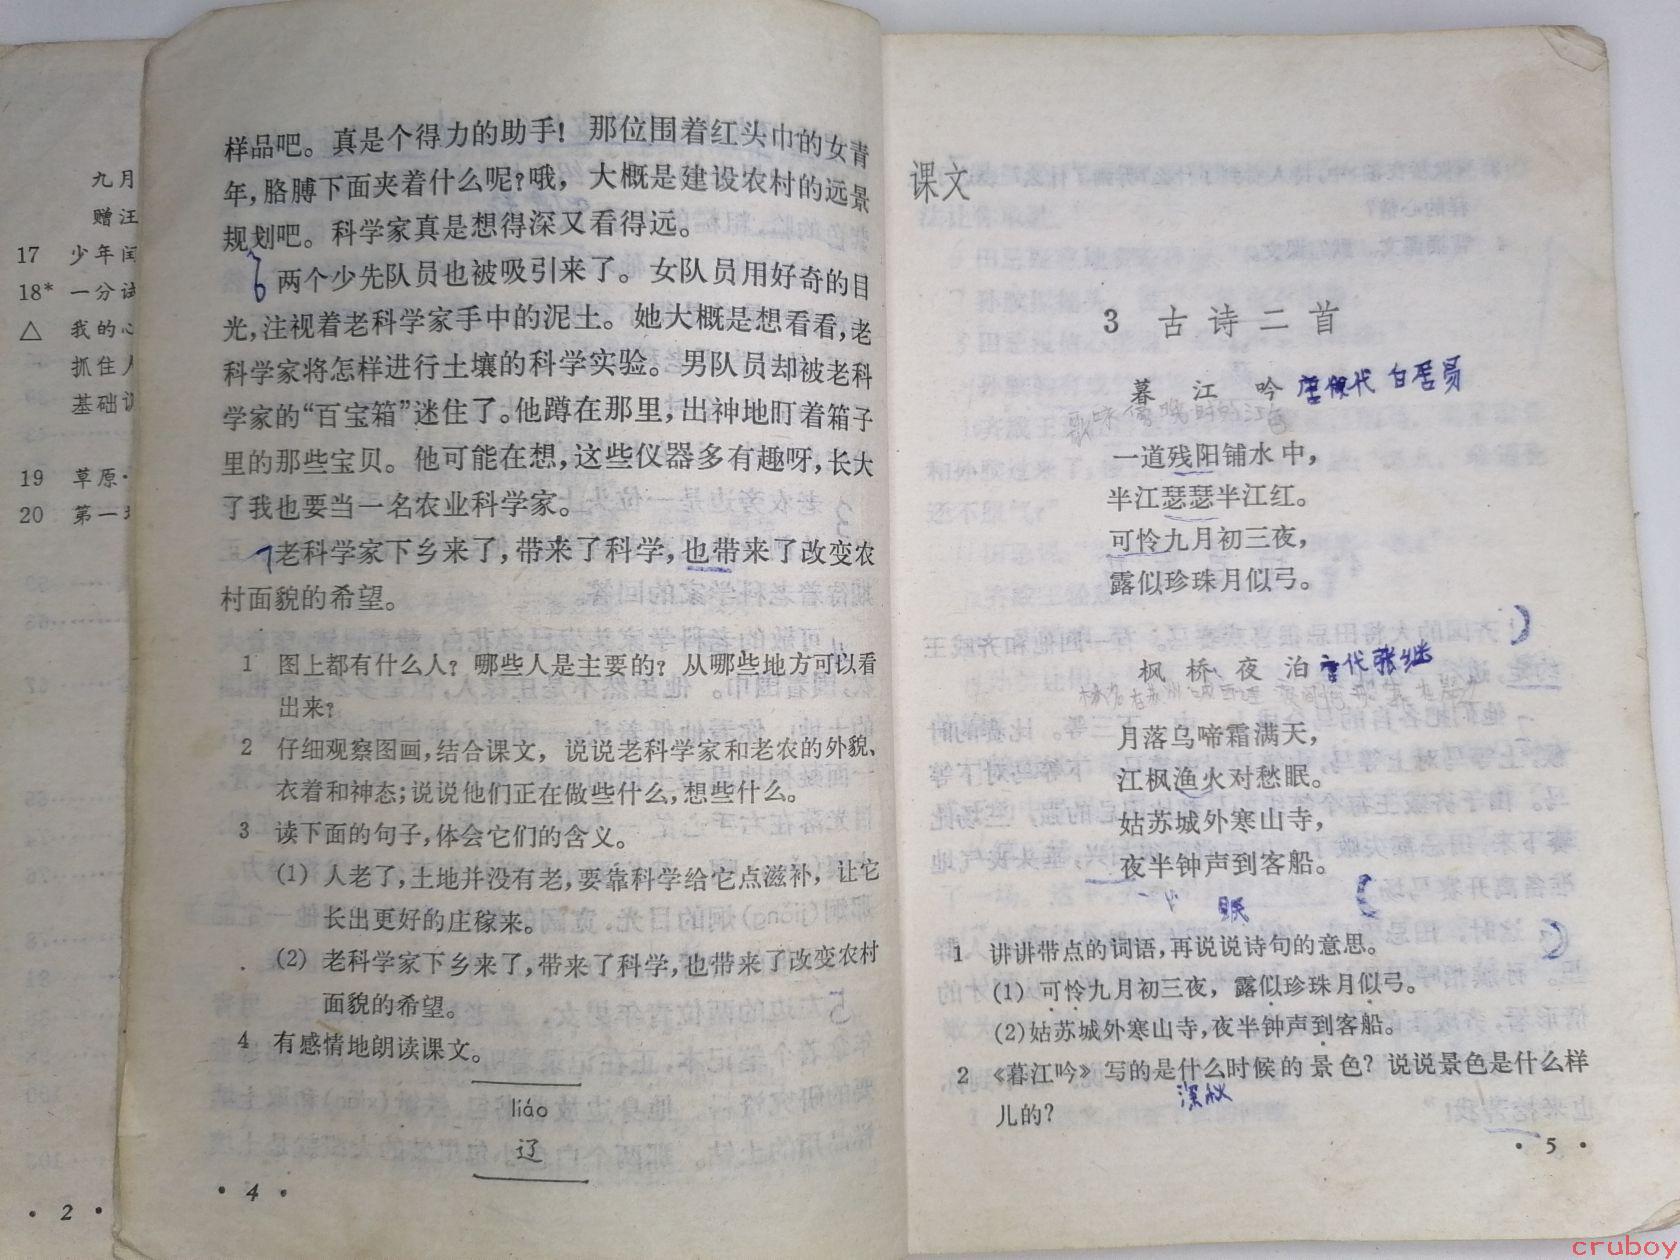 九月
赠汪
17 少年闰
18* 一分试
△ 我的心
抓住人
基础训
19 草原
20 第一场
· 2 ·
样品吧。真是个得力的助手！那位围着红头巾的女青
年，胳膊下面夹着什么呢？哦，大概是建设农村的远景
规划吧。科学家真是想得深又看得远。
6 两个少先队员也被吸引来了。女队员用好奇的目
光，注视着老科学家手中的泥土。她大概是想看看，老
科学家将怎样进行土壤的科学实验。男队员却被老科
学家的“百宝箱”迷住了。他蹲在那里，出神地盯着箱子
里的那些宝贝。他可能在想，这些仪器多有趣呀，长大
了我也要当一名农业科学家。
7 老科学家下乡来了，带来了科学，也带来了改变农
村面貌的希望。
1 图上都有什么人？哪些人是主要的？从哪些地方可以看
出来？
2 仔细观察图画，结合课文，说说老科学家和老农的外貌、
衣着和神态；说说他们正在做些什么，想些什么。
3 读下面的句子，体会它们的含义。
(1) 人老了，土地并没有老，要靠科学给它点滋补，让它
长出更好的庄稼来。
(2) 老科学家下乡来了，带来了科学，也带来了改变农村
面貌的希望。
4 有感情地朗读课文。
liáo
辽
· 4 ·
课文
3 古诗二首
暮江吟 代 白居易
一道残阳铺水中，
半江瑟瑟半江红。
可怜九月初三夜，
露似珍珠月似弓。
枫桥夜泊 唐代张继
月落乌啼霜满天，
江枫渔火对愁眠。
姑苏城外寒山寺，
夜半钟声到客船。
眠
1 讲讲带点的词语，再说说诗句的意思。
(1) 可怜九月初三夜，露似珍珠月似弓。
(2)姑苏城外寒山寺，夜半钟声到客船。
2 《暮江吟》写的是什么时候的景色？说说景色是什么样
深秋
儿的？
· 5 ·
cruboy